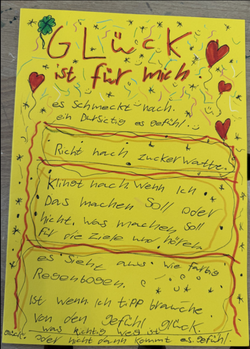 GLÜCK
ist für mich
es schmeckt nach.
ein Dursitig es gefühl.
Richt nach zuckerwatte.
Klingt nach wenn ich
Das machen soll oder
nicht, was machen soll
für die Ziele und hören
es Sieht aus wie farbig
Regenbogen.
Ist wenn ich tipp brauche
von den gefühl glück.
was richtig weg ist
oder nicht dann kommt es gefühl.